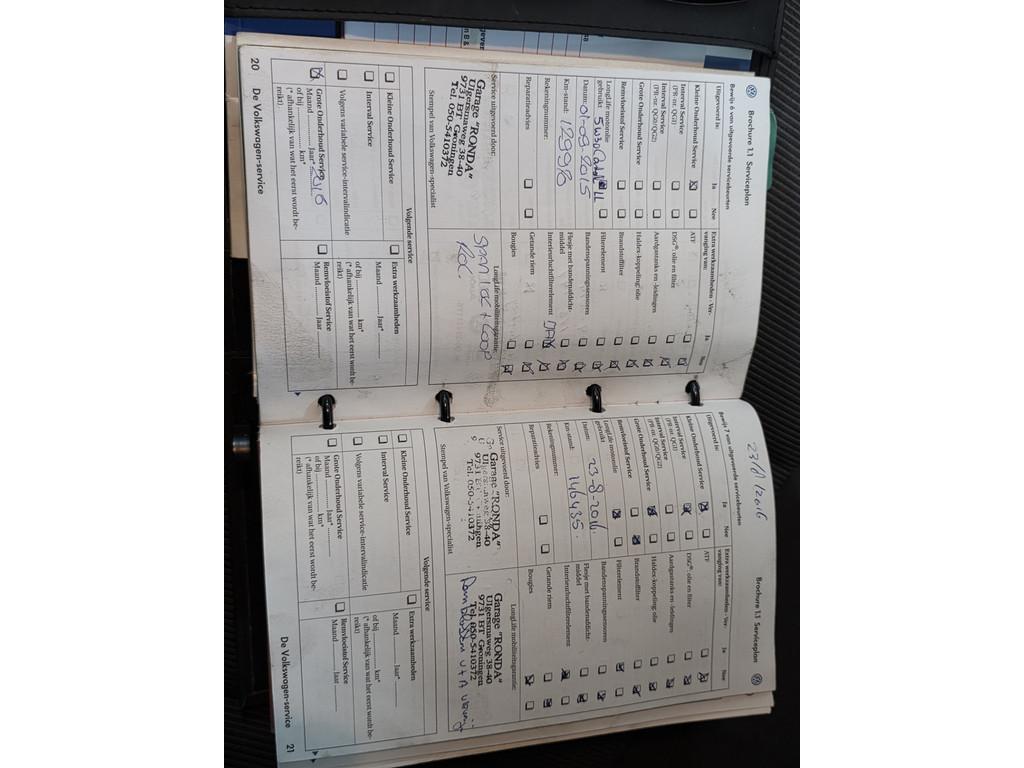 Brochure 1.1 Serviceplan
Bewijs 6 van uitgevoerde servicebeurten
Uitgevoerd is:
Ja
Nee
Kleine Onderhoud Service
Interval Service
(PR-nr. QG1)
Interval Service
(PR-nr. QG0/QG2)
Grote Onderhoud Service
Remvloeistof Service
LongLife motorolie
gebruikt: 5W30
Datum: 01-09-2015
Km-stand: 129998
Rekeningnummer:
Reparatieadvies
Service uitgevoerd door:
Garage "RONDA"
Ulgersmaweg 38-40
9731 BT Groningen
Tel. 050-5410372
Stempel van Volkswagen-specialist
Extra werkzaamheden - Ver-
vanging van:
Ja
Nee
ATF
DSG®: olie en filter
Aardgastanks en -leidingen
Haldex-koppeling: olie
Brandstoffilter
Filterelement
Bandenspanningsensoren
Flesje met bandenafdicht-
middel
Interieurluchtfilterelement
Getande riem
Bougies
LongLife mobiliteitsgarantie:
Volgende service
Kleine Onderhoud Service
Interval Service
Volgens variabele service-intervalindicatie
Grote Onderhoud Service
Maand Jaar* 2016
of bij km*
(* afhankelijk van wat het eerst wordt be-
reikt)
Extra werkzaamheden
Maand Jaar*
of bij km*
(* afhankelijk van wat het eerst wordt be-
reikt)
Remvloeistof Service
Maand Jaar
20
De Volkswagen-service
Brochure 1.1 Serviceplan
Bewijs 7 van uitgevoerde servicebeurten
Uitgevoerd is:
Ja
Nee
Kleine Onderhoud Service
Interval Service
(PR-nr. QG1)
Interval Service
(PR-nr. QG0/QG2)
Grote Onderhoud Service
Remvloeistof Service
LongLife motorolie
gebruikt:
Datum: 23-8-2016
Km-stand: 146435
Rekeningnummer:
Reparatieadvies
Service uitgevoerd door:
Garage "RONDA"
Ulgersmaweg 38-40
9731 BT Groningen
Tel. 050-5410372
Stempel van Volkswagen-specialist
Extra werkzaamheden - Ver-
vanging van:
Ja
Nee
ATF
DSG®: olie en filter
Aardgastanks en -leidingen
Haldex-koppeling: olie
Brandstoffilter
Filterelement
Bandenspanningsensoren
Flesje met bandenafdicht-
middel
Interieurluchtfilterelement
Getande riem
Bougies
LongLife mobiliteitsgarantie:
Garage "RONDA"
Ulgersmaweg 38-40
9731 BT Groningen
Tel. 050-5410372
Volgende service
Kleine Onderhoud Service
Interval Service
Volgens variabele service-intervalindicatie
Grote Onderhoud Service
Maand Jaar*
of bij km*
(* afhankelijk van wat het eerst wordt be-
reikt)
Extra werkzaamheden
Maand Jaar*
of bij km*
(* afhankelijk van wat het eerst wordt be-
reikt)
Remvloeistof Service
Maand Jaar
De Volkswagen-service
21